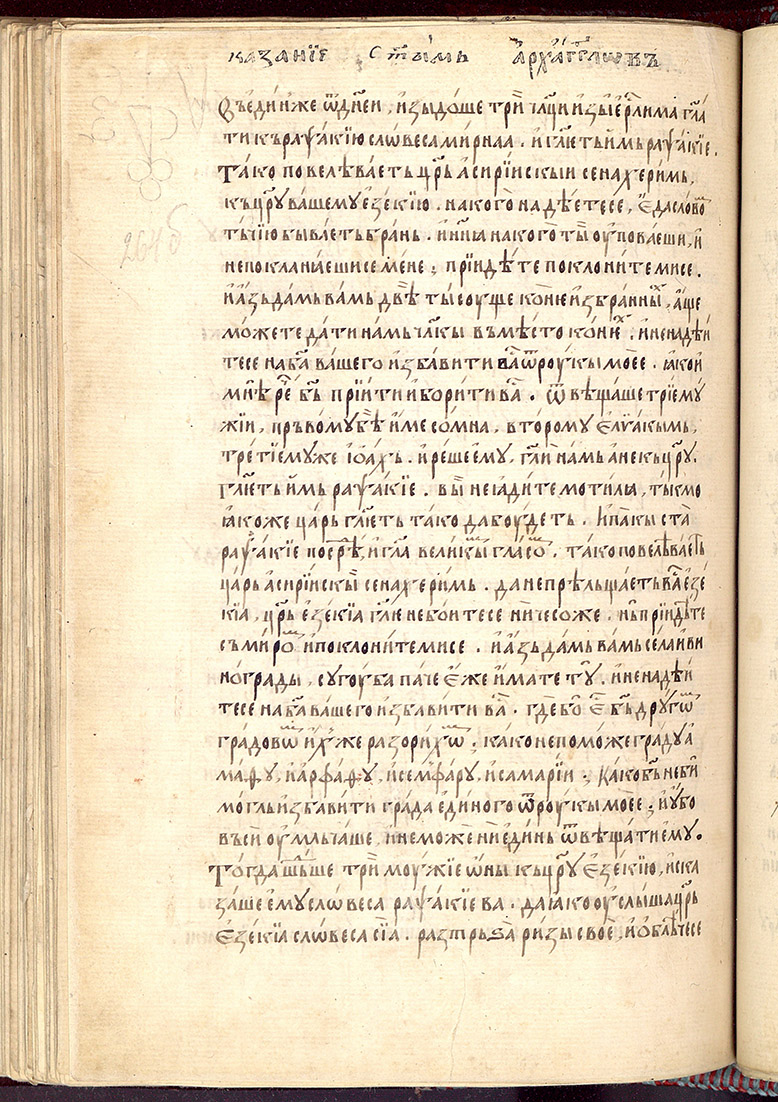 казанїе с҃тымь а҆рха́гг҃лѡвъ
264 б
Въедѝнже ѿдн҃ей, и҆зыдо́ше трѝ чл҃ци и҆зые҆рл҃има гл҃а
ти къраѱа́кїю слѡвеса мѝрнаа . и҆гл҃етьи҆мь раѱа́кїе .
Та́ко повелѣва́еть цр҃ь а҆сирїискыи сенахери́мь,
къцр҃у ва́шему е҆зе́кїю . нако́го надѣ́етесе, е҆да сло́во
ты́чїю быва́еть бра́нь . и҆нн҃ꙗ нако́го ты̀ оу҆пова́еши, и҆
непокланꙗ́ешисе ме́не ; прїидѣ́те поклони́темисе .
и҆а҆́зь да́мь ва́мь двѣ̀ ты́соуще ко́нїе и҆збра́нны, а҆́ще
мо́жете да́ти на́мь чл҃кы въмѣ́сто ко́нїе . и҆ненадѣ́и
тесе наб҃а ва́шего и҆зба́вити ва̀ ѿроукы́ мое́е . ꙗ҆́кои
мнѣ̀ рѐ б҃ь прїити и҆бори́ти ва̀ . ѿвѣща́ше трїе му́
жїи, пръвому бѣ̀ и҆́ме со́мна, вто́рому е҆лїа́кымь,
тре́тїемуже і҆ѡа́хь . и҆ре́шеему, гл҃и на́мь а҆некь цр҃у .
гл҃еть и҆мь раѱа́кїе . вы̀ неꙗ҆ди́те моти́лы, ты́кмо
ꙗ҆коже ца́рь гл҃еть та́ко дабоу́деть . И҆па́кы ста
раѱа́кїе посрѣ̀, и҆гл҃а вели́кымь гла́сѡ . та́ко повелѣва́еть
ца́рь а҆сирїискы̀ сенахери́мь . да непрѣльща́еть ва̀ е҆зе́
кїа, цр҃ь е҆зе́кїа гл҃ю небо́итесе ниче́соже . нъ прїидѣ́те
съми́ро и҆поклони́темисе . и҆а҆́зь да́мь ва́мь се́ла и҆ви
но́грады, сугоу́ба па́че е҆́же и҆́мате тꙋ̀ . и҆ненадѣ́и
тесе наб҃а ва́шего и҆зба́вити ва̀ . гдѐбо е҆̀ б҃ь дру́гѡ
градовѡ и҆́хже разори́хѡ ; ка́ко непомо́же гра́ду а҆
ма́ѳу, и҆а҆рфа́ѳу, и҆семфа́ру, и҆самарїи . Ка́ко б҃ъ неби
мо́гль и҆зба́вити гра́да е҆ди́ного ѿроукы́ мое́е ; и҆у҆бо
въсѝ оу҆мльча́ше, и҆немо́же ниеди́нь ѿвѣща́ти е҆му .
Тогда̀ ше́дьше трѝ моу́жїе ѡ҆ны къцр҃у е҆зе́кїю, и҆ска
за́ше е҆му слѡвеса̀ раѱа́кїева . да ꙗ҆́ко оу҆слы́ша цр҃ь
Е҆зе́кїа слѡвеса̀ сїа̀ . разтрьѕа̀ ри́зы своѐ, и҆о҆блѣ́чесе